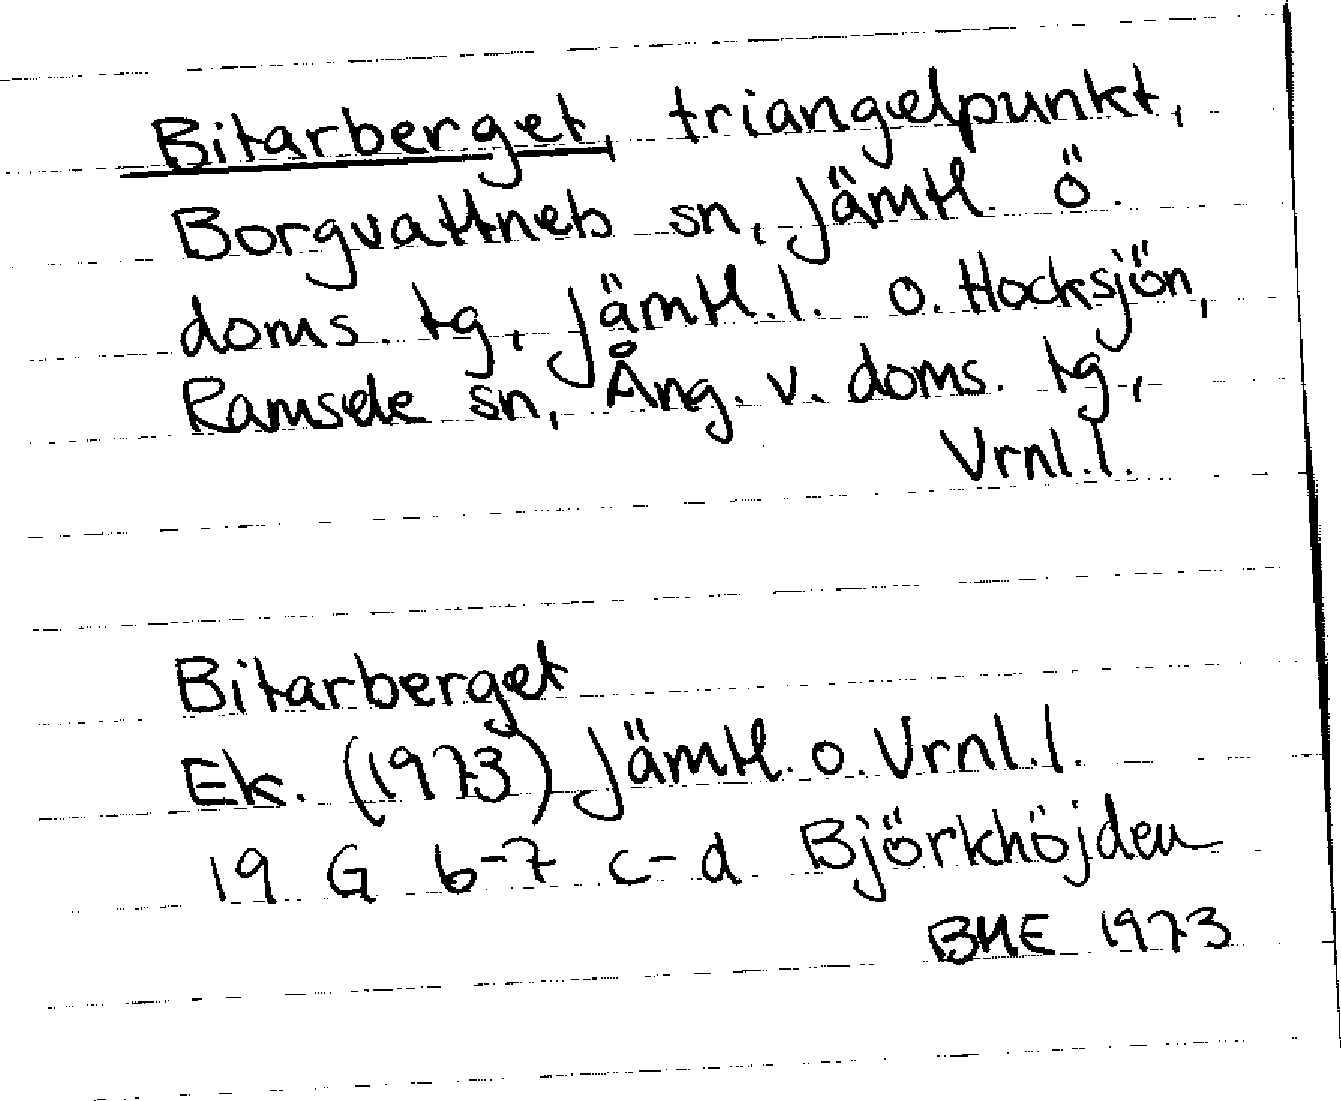 Bitarberget, triangelpunkt,
Borgvattnets sn, Jämtl. ö.
doms. tg, Jämtl.l. o. Hocksjön,
Ramsele sn, Ång. v. doms. tg,
Vrnl.l.
Bitarberget
Ek. (1973) Jämtl. o. Vrnl.l.
19 G 6-7 c-d Björkhöjden
BHE 1973